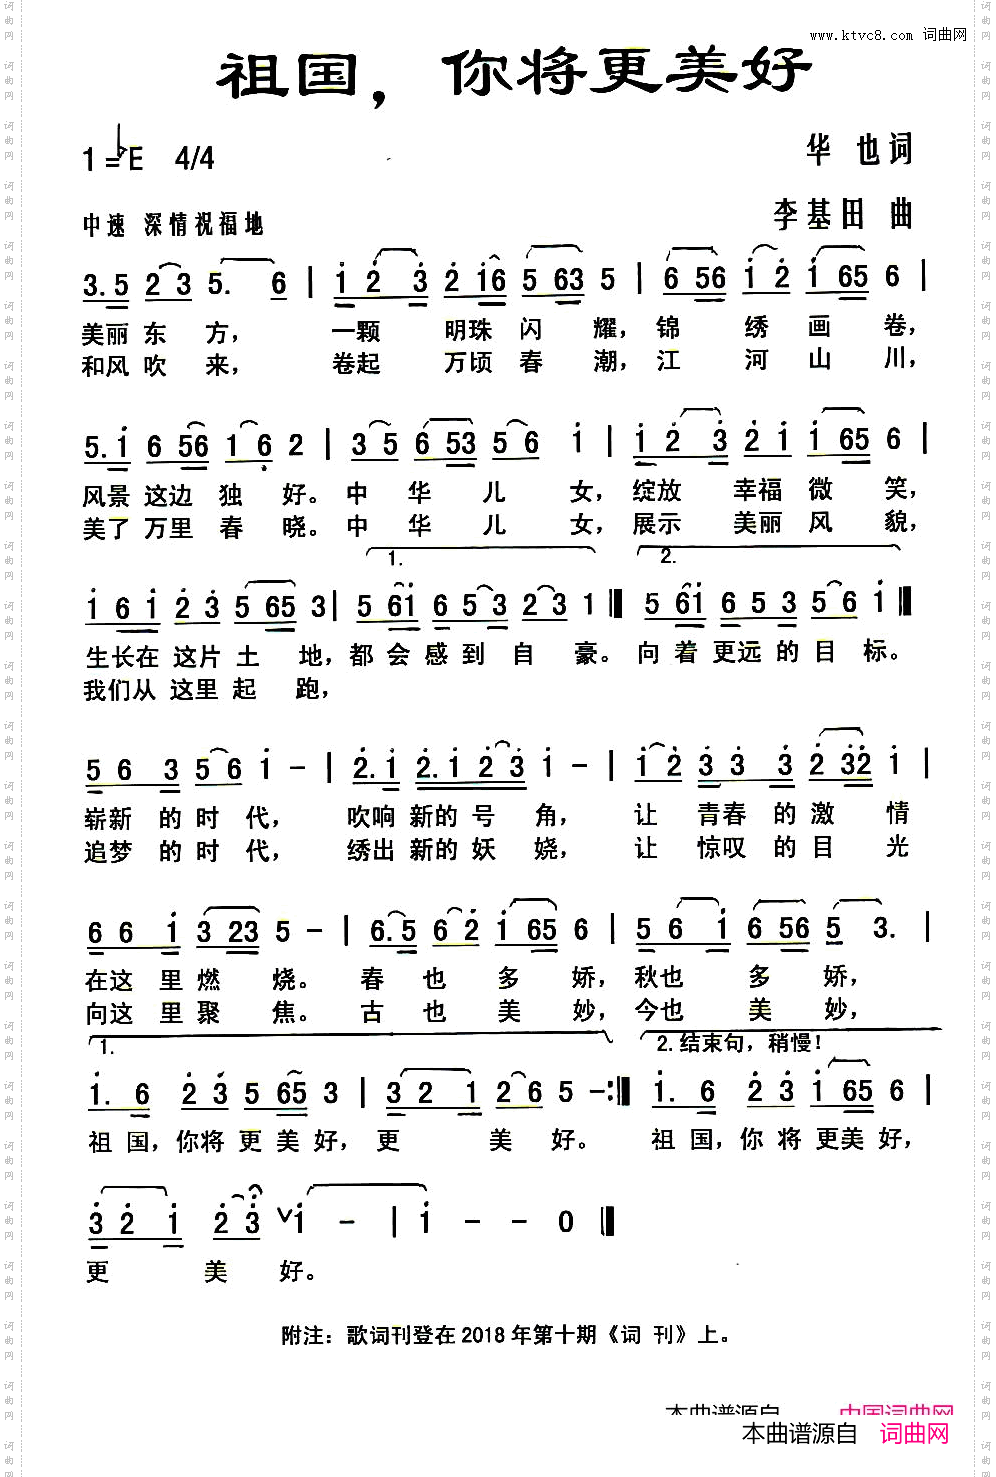 www.ktvc8.com 词曲网
祖国，你将更美好
1=♭E 4/4
华 也 词
中速 深情祝福地
李基田 曲
3.5 2 3 5. 6 | 1 2 3 2 16 5 63 5 | 6 56 1 2 1 65 6 |
美丽 东 方， 一颗 明珠 闪 耀， 锦 绣 画 卷，
和风 吹 来， 卷起 万顷 春 潮， 江 河 山 川，
5.1 6 56 1 6 2 | 3 5 6 53 5 6 1 | 1 2 3 2 1 1 65 6 |
风景 这边 独 好。 中 华 儿 女， 绽放 幸福 微 笑，
美了 万里 春 晓。 中 华 儿 女， 展示 美丽 风 貌，
1. 2.
1 6 1 2 3 5 65 3 | 5 61 6 5 3 2 3 1 :‖ 5 61 6 5 3 5 6 1 ‖
生长在 这片 土 地， 都 会 感 到 自 豪。 向 着 更远 的 目 标。
我们从 这里 起 跑，
5 6 3 5 6 1 - | 2.1 2.1 2 3 1 - | 1 2 3 3 3 2 32 1 |
崭新 的 时 代， 吹响 新的 号 角， 让 青春 的 激 情
追梦 的 时 代， 绣出 新的 妖 娆， 让 惊叹 的 目 光
6 6 1 3 23 5 - | 6.5 6 2 1 65 6 | 5 6 1 6 56 5 3. |
在这 里 燃 烧。 春 也 多 娇， 秋也 多 娇，
向这 里 聚 焦。 古 也 美 妙， 今也 美 妙，
1. 2. 结束句，稍慢！
1. 6 2 3 5 65 3 | 3 2 1 2 6 5 - :‖ 1. 6 2 3 1 65 6 |
祖 国， 你将 更 美 好， 更 美 好。 祖 国， 你 将 更美 好，
3 2 1 2 3 ∨1 - | 1 - - 0 ‖
更 美 好。
附注：歌词刊登在 2018 年第十期《词 刊》上。
本曲谱源自 中国词曲网
本曲谱源自 词曲网